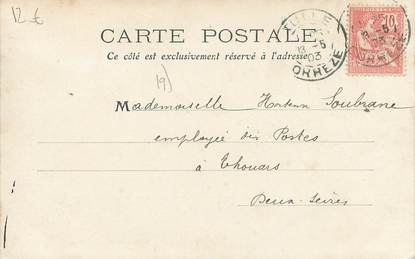 12 €
CARTE POSTALE
Ce côté est exclusivement réservé à l'adresse
TULLE
13 -5
03
CORRÈZE
10
19)
Mademoiselle Hortense Soubrane
employée des Postes
à Thouars
Deux-Sèvres